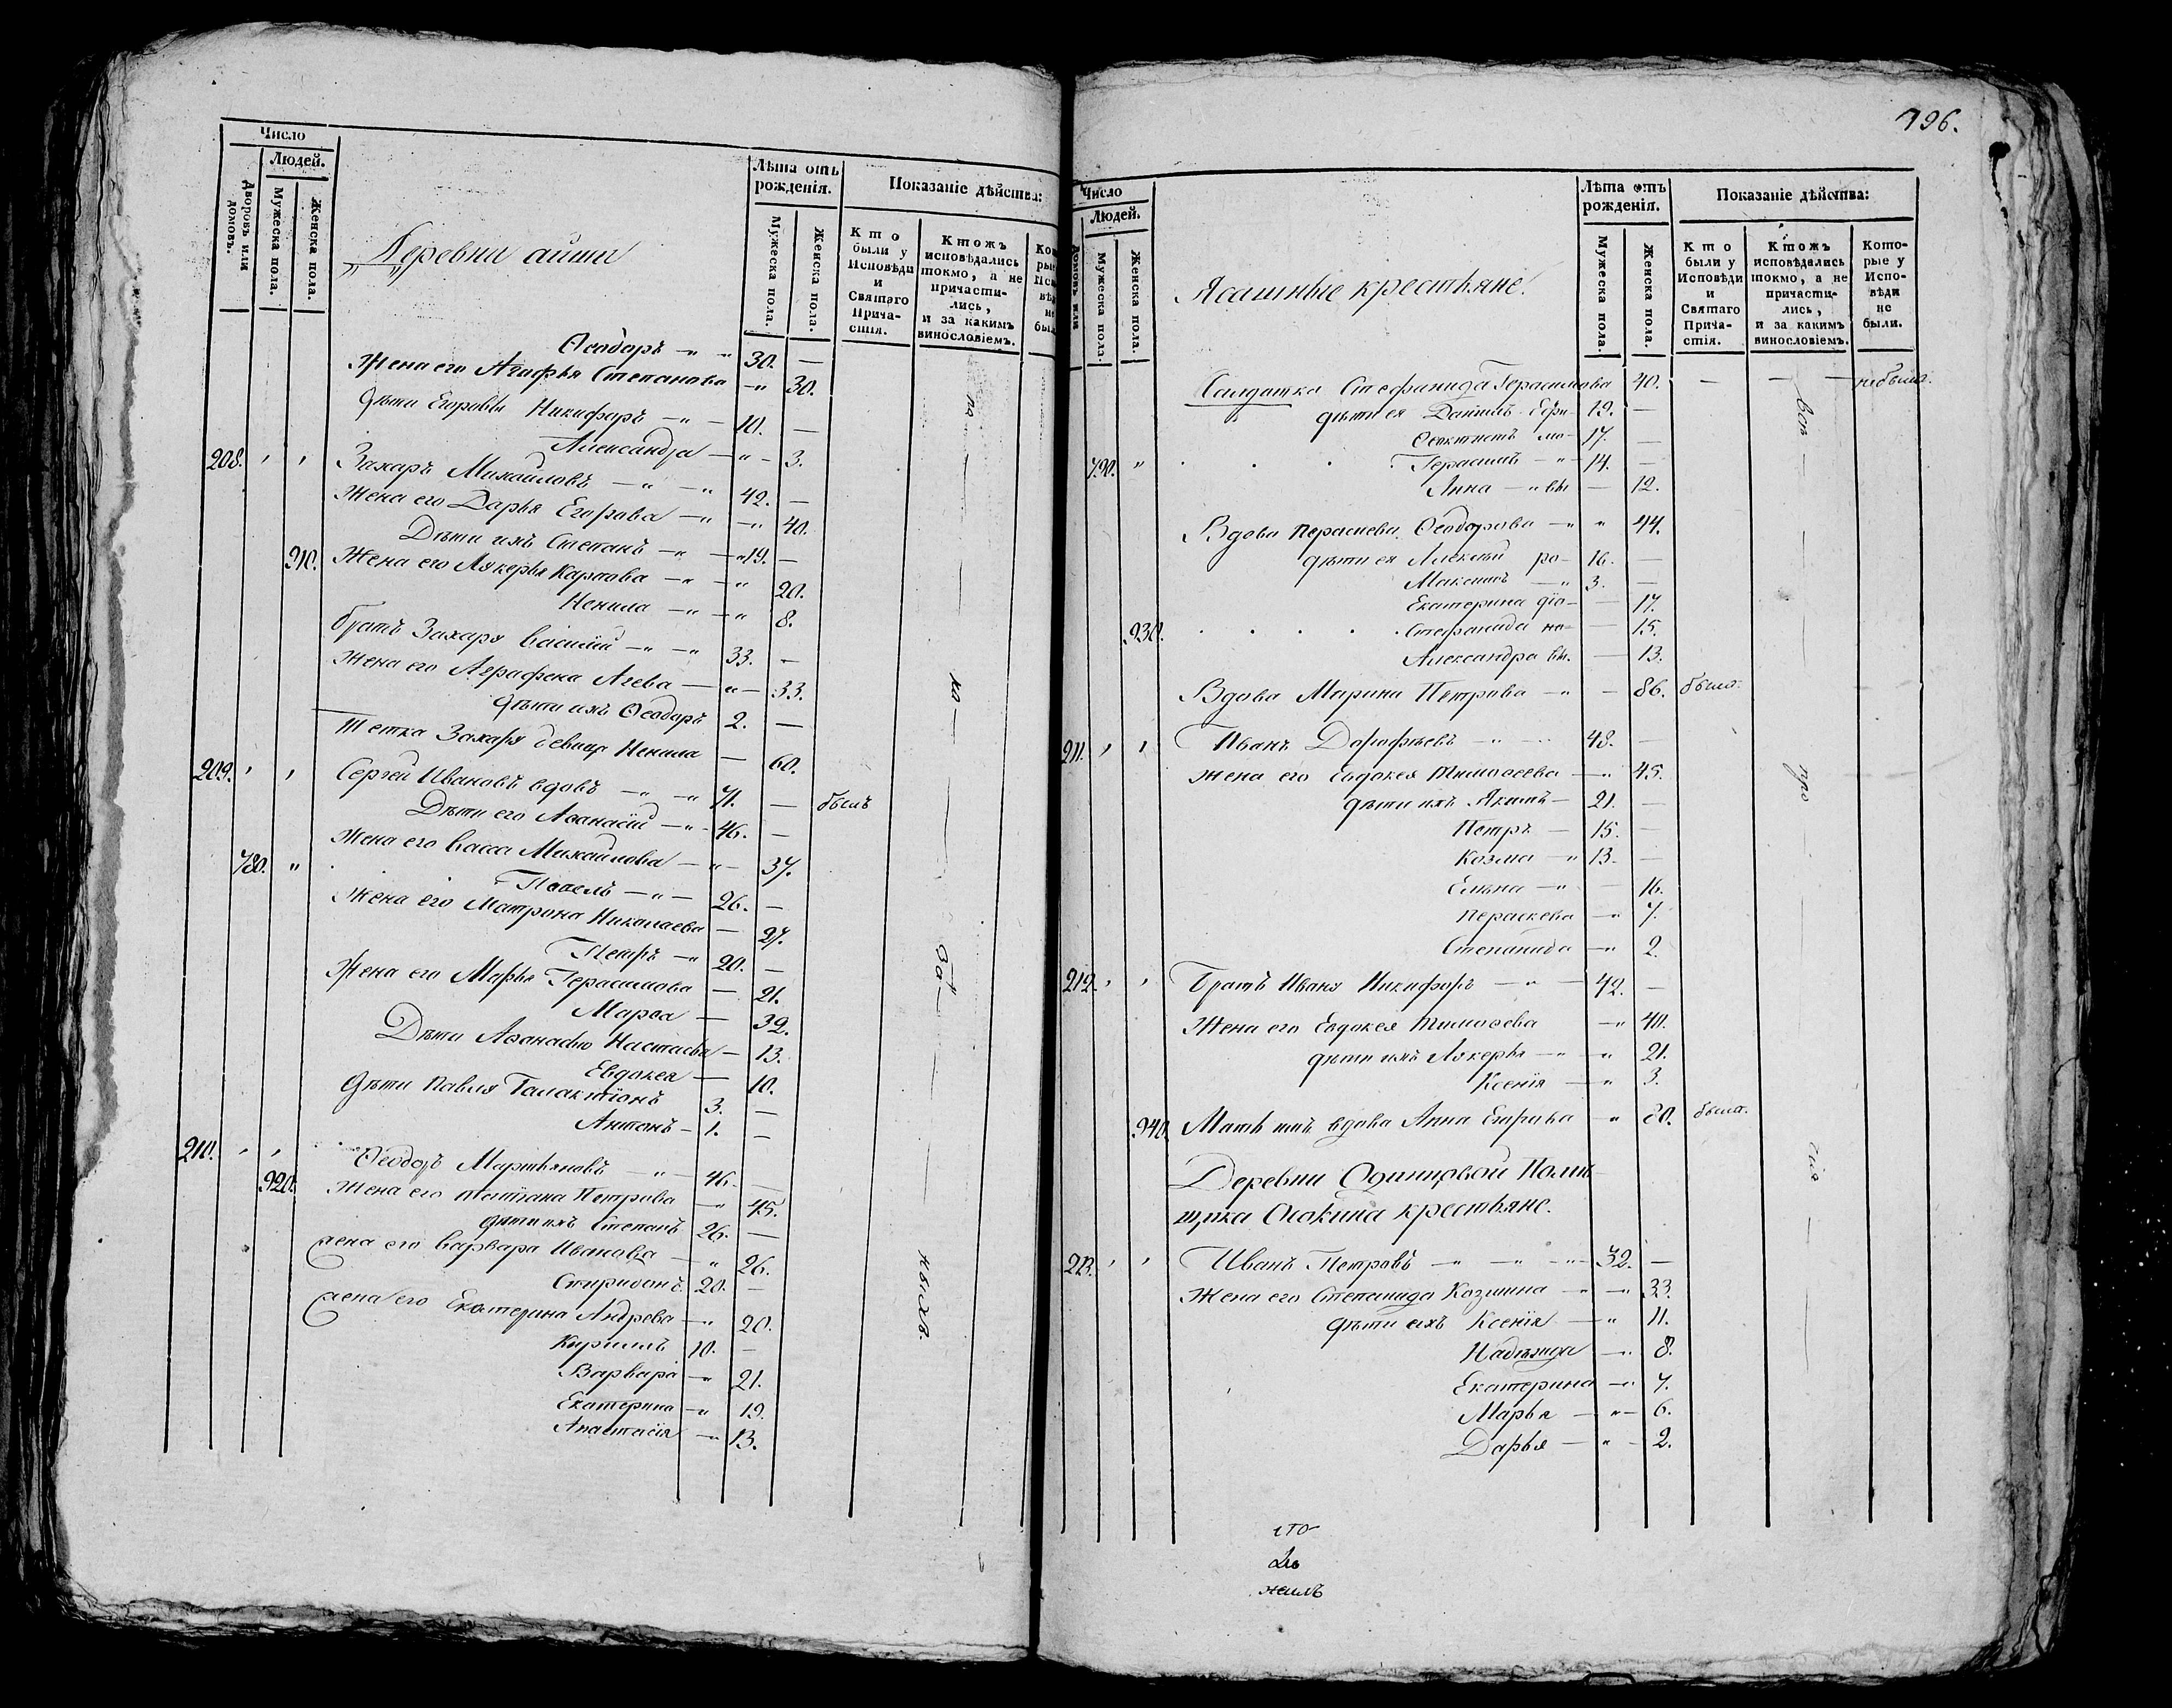 Число
Людей.
Дворовъ или домовъ.
Мужеска пола.
Женска пола.
Деревни айши
Лѣта отъ рожденія.
Мужеска пола.
Женска пола.
Показаніе дѣйства:
Кто были у Исповѣди и Святаго Прича-стія.
Ктожъ исповѣдались токмо, а не причасти-лись, и за какимъ винословіемъ.
Ѳеодоръ — " " 30. —
Жена его Агафья Степанова — " 30.
Дѣти Егоровы Никифоръ — " — 10. —
Александра — " — 3.
208. Захаръ Михайловъ — " — " 42. —
Жена его Дарья Егорова — " — " 40.
Дѣти ихъ Степанъ — " — " 19. —
910. Жена его Лукерья Карпова — " — " 20.
Ненила — " — " 8.
братъ Захаря Василій — " — " 33. —
Жена его Аграфена Агева — " — 33.
Дѣти ихъ Ѳеодоръ 2. —
Тетка Захаря девица Ненила — 60.
209. Сергей Ивановъ вдовъ — " — " 71. — былъ
Дѣти его Аѳанасій — " — 46. —
Жена его Васса Михайлова — " — 37.
780. " Павелъ — " — 26. —
Жена его Матрона Николаева — 27.
Петръ — " 20. —
Жена его Марья Герасимова — 21.
Марѳа — 32.
Дѣти Аѳанасью Настасья — 13.
Евдокея — 10.
Дѣти Павля Галактіонъ 3. —
Антонъ — 1. —
210. Ѳеодоръ Мартьяновъ — " — 46. —
920. Жена его татіана Петрова — " 45.
Дѣти ихъ Степанъ 26. —
жена его Варвара Иванова — " 26.
Спиридонъ 20. —
жена его Екатерина Андрева — " 20.
Кирилъ 10. —
Варвара — " 21.
Екатерина — " 19.
Анастасія — " 13.
по
ка
за
ныхъ.
796.
Число
Людей.
домовъ или
Мужеска пола.
Женска пола.
Ясашные крестьяне.
Лѣта отъ рожденія.
Мужеска пола.
Женска пола.
Показаніе дѣйства:
Кто были у Исповѣди и Святаго Прича-стія.
Ктожъ исповѣдались токмо, а не причасти-лись, и за какимъ винословіемъ.
Кото-рые у Испо-вѣди не были.
Салдатка Стефанида Герасимова 40. — — — небыла.
дѣти ея Даніилъ 19. —
Ѳеоктистъ 17. —
790. " Герасимъ — " 14. —
Анна — — 12.
Вдова Параскева Ѳеодорова — " " 44.
дѣти ея Алексѣй 16. —
Максимъ — " 3. —
Екатерина — 17.
930. Стефанида — 15.
Александра — 13.
Вдова Марина Петрова — " — 86. была.
211. Иванъ Дорофѣевъ — " — 48. —
жена его Евдокея Тимоѳеева — " 45.
дѣти ихъ Якимъ — 21. —
Петръ — 15. —
Козма — " 13. —
Елена — " — 16.
Параскева — " 7.
Степанида — " 2.
212. Братъ Иваня Никифоръ — " — 42. —
Жена его Евдокея Тимоѳева — " 40.
дѣти ихъ Лукерья — " — " 21.
Ксенія — " 3.
940. Мать ихъ вдова Анна Егорова " 80. была.
Деревни Одинцовой Помѣ-
щика Осокина крестьяне.
213. Иванъ Петровъ — " — " — " — 32. —
Жена его Степанида Козмина — " — " 33.
дѣти ихъ Ксенія — " 11.
Надежда — " 8.
Екатерина — " 7.
Марья — " — 6.
Дарья — " — 2.